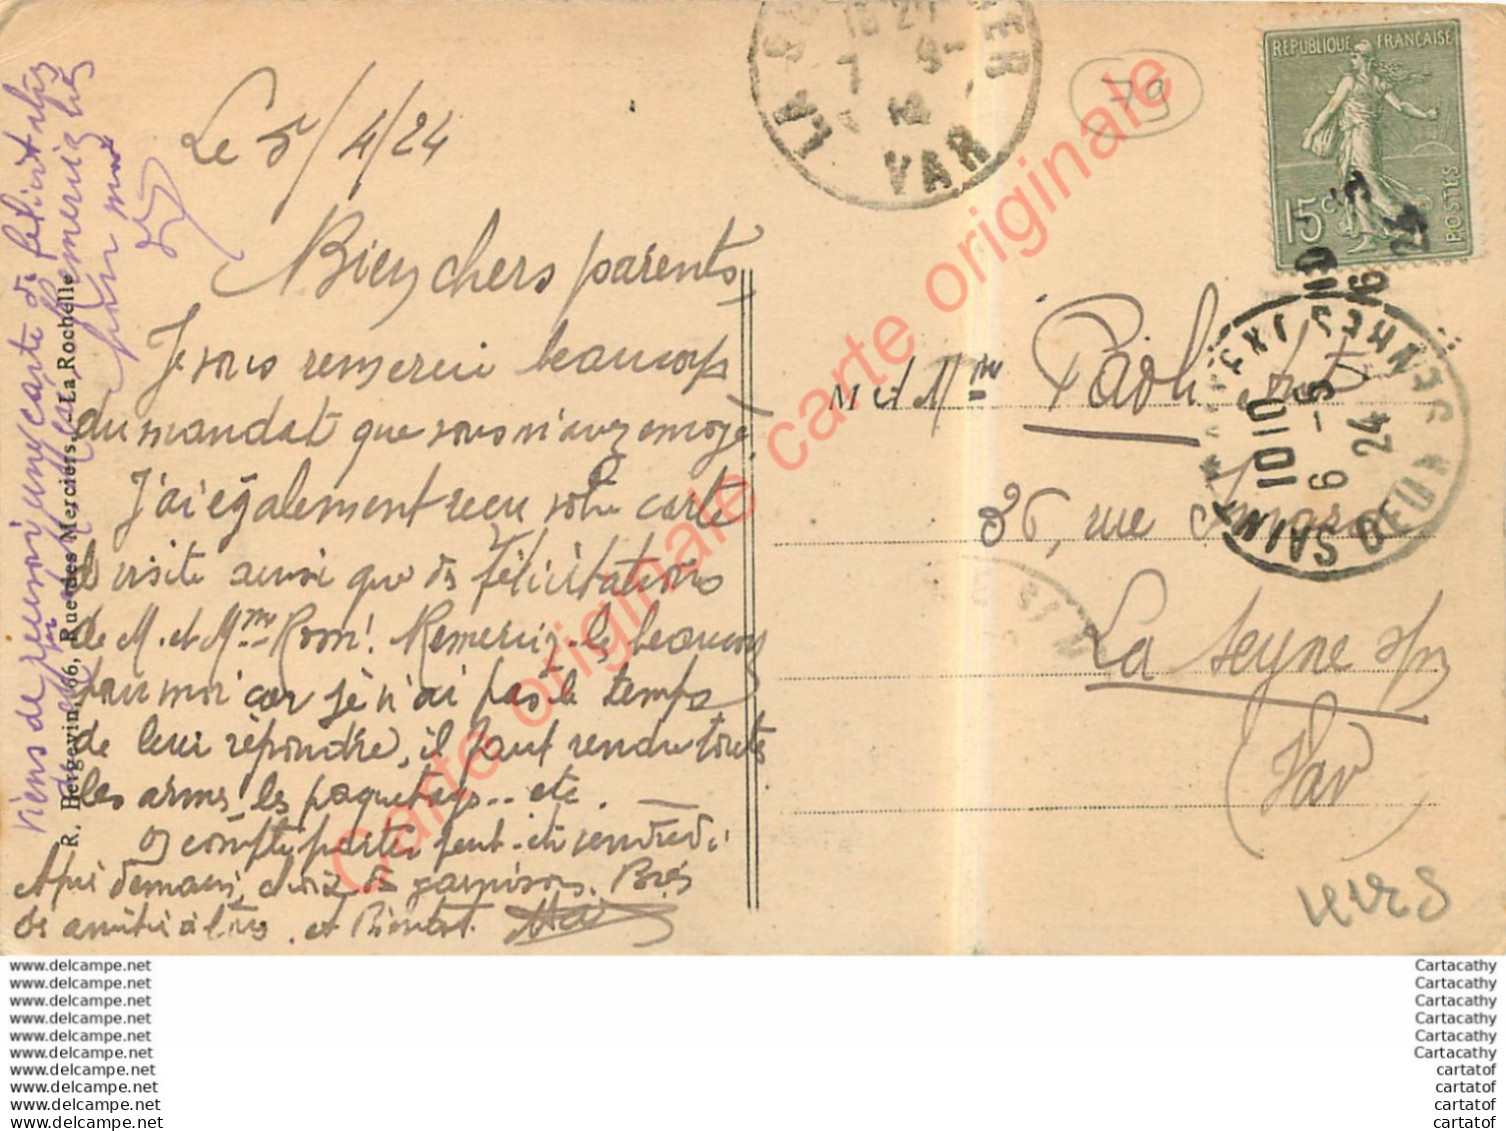 Le 5/4/24
Bien chers parents,
Je vous remercie beaucoup
du mandat que vous m'avez envoyé.
J'ai également reçu votre carte
de visite ainsi que des félicitations
de M. et Mme Rom! Remerciez-les beaucoup
pour moi car je n'ai pas le temps
de leur répondre, il faut rendre toutes
les armes, les paquetages... etc. —
on compte partir peut-être vendredi
Après demain, choix de garnisons. Bons
de amitié à tous. et Bientôt.
viens de recevoir une carte de
Remerciez les
pour moi
R. Bergevin, 66, Rue des Merciers, La Rochelle
LA SEYNE SUR MER
VAR
79
REPUBLIQUE FRANÇAISE
15c
POSTES
SAINT MAIXENT
DEUX SEVRES
10 10
6 - 5
24
M et Mme Paoli
36, rue
La Seyne s/m
(Var)
www.delcampe.net
www.delcampe.net
www.delcampe.net
www.delcampe.net
www.delcampe.net
www.delcampe.net
www.delcampe.net
www.delcampe.net
www.delcampe.net
www.delcampe.net
Cartacathy
Cartacathy
Cartacathy
Cartacathy
Cartacathy
Cartacathy
cartatof
cartatof
cartatof
cartatof
Carte originale carte originale carte originale